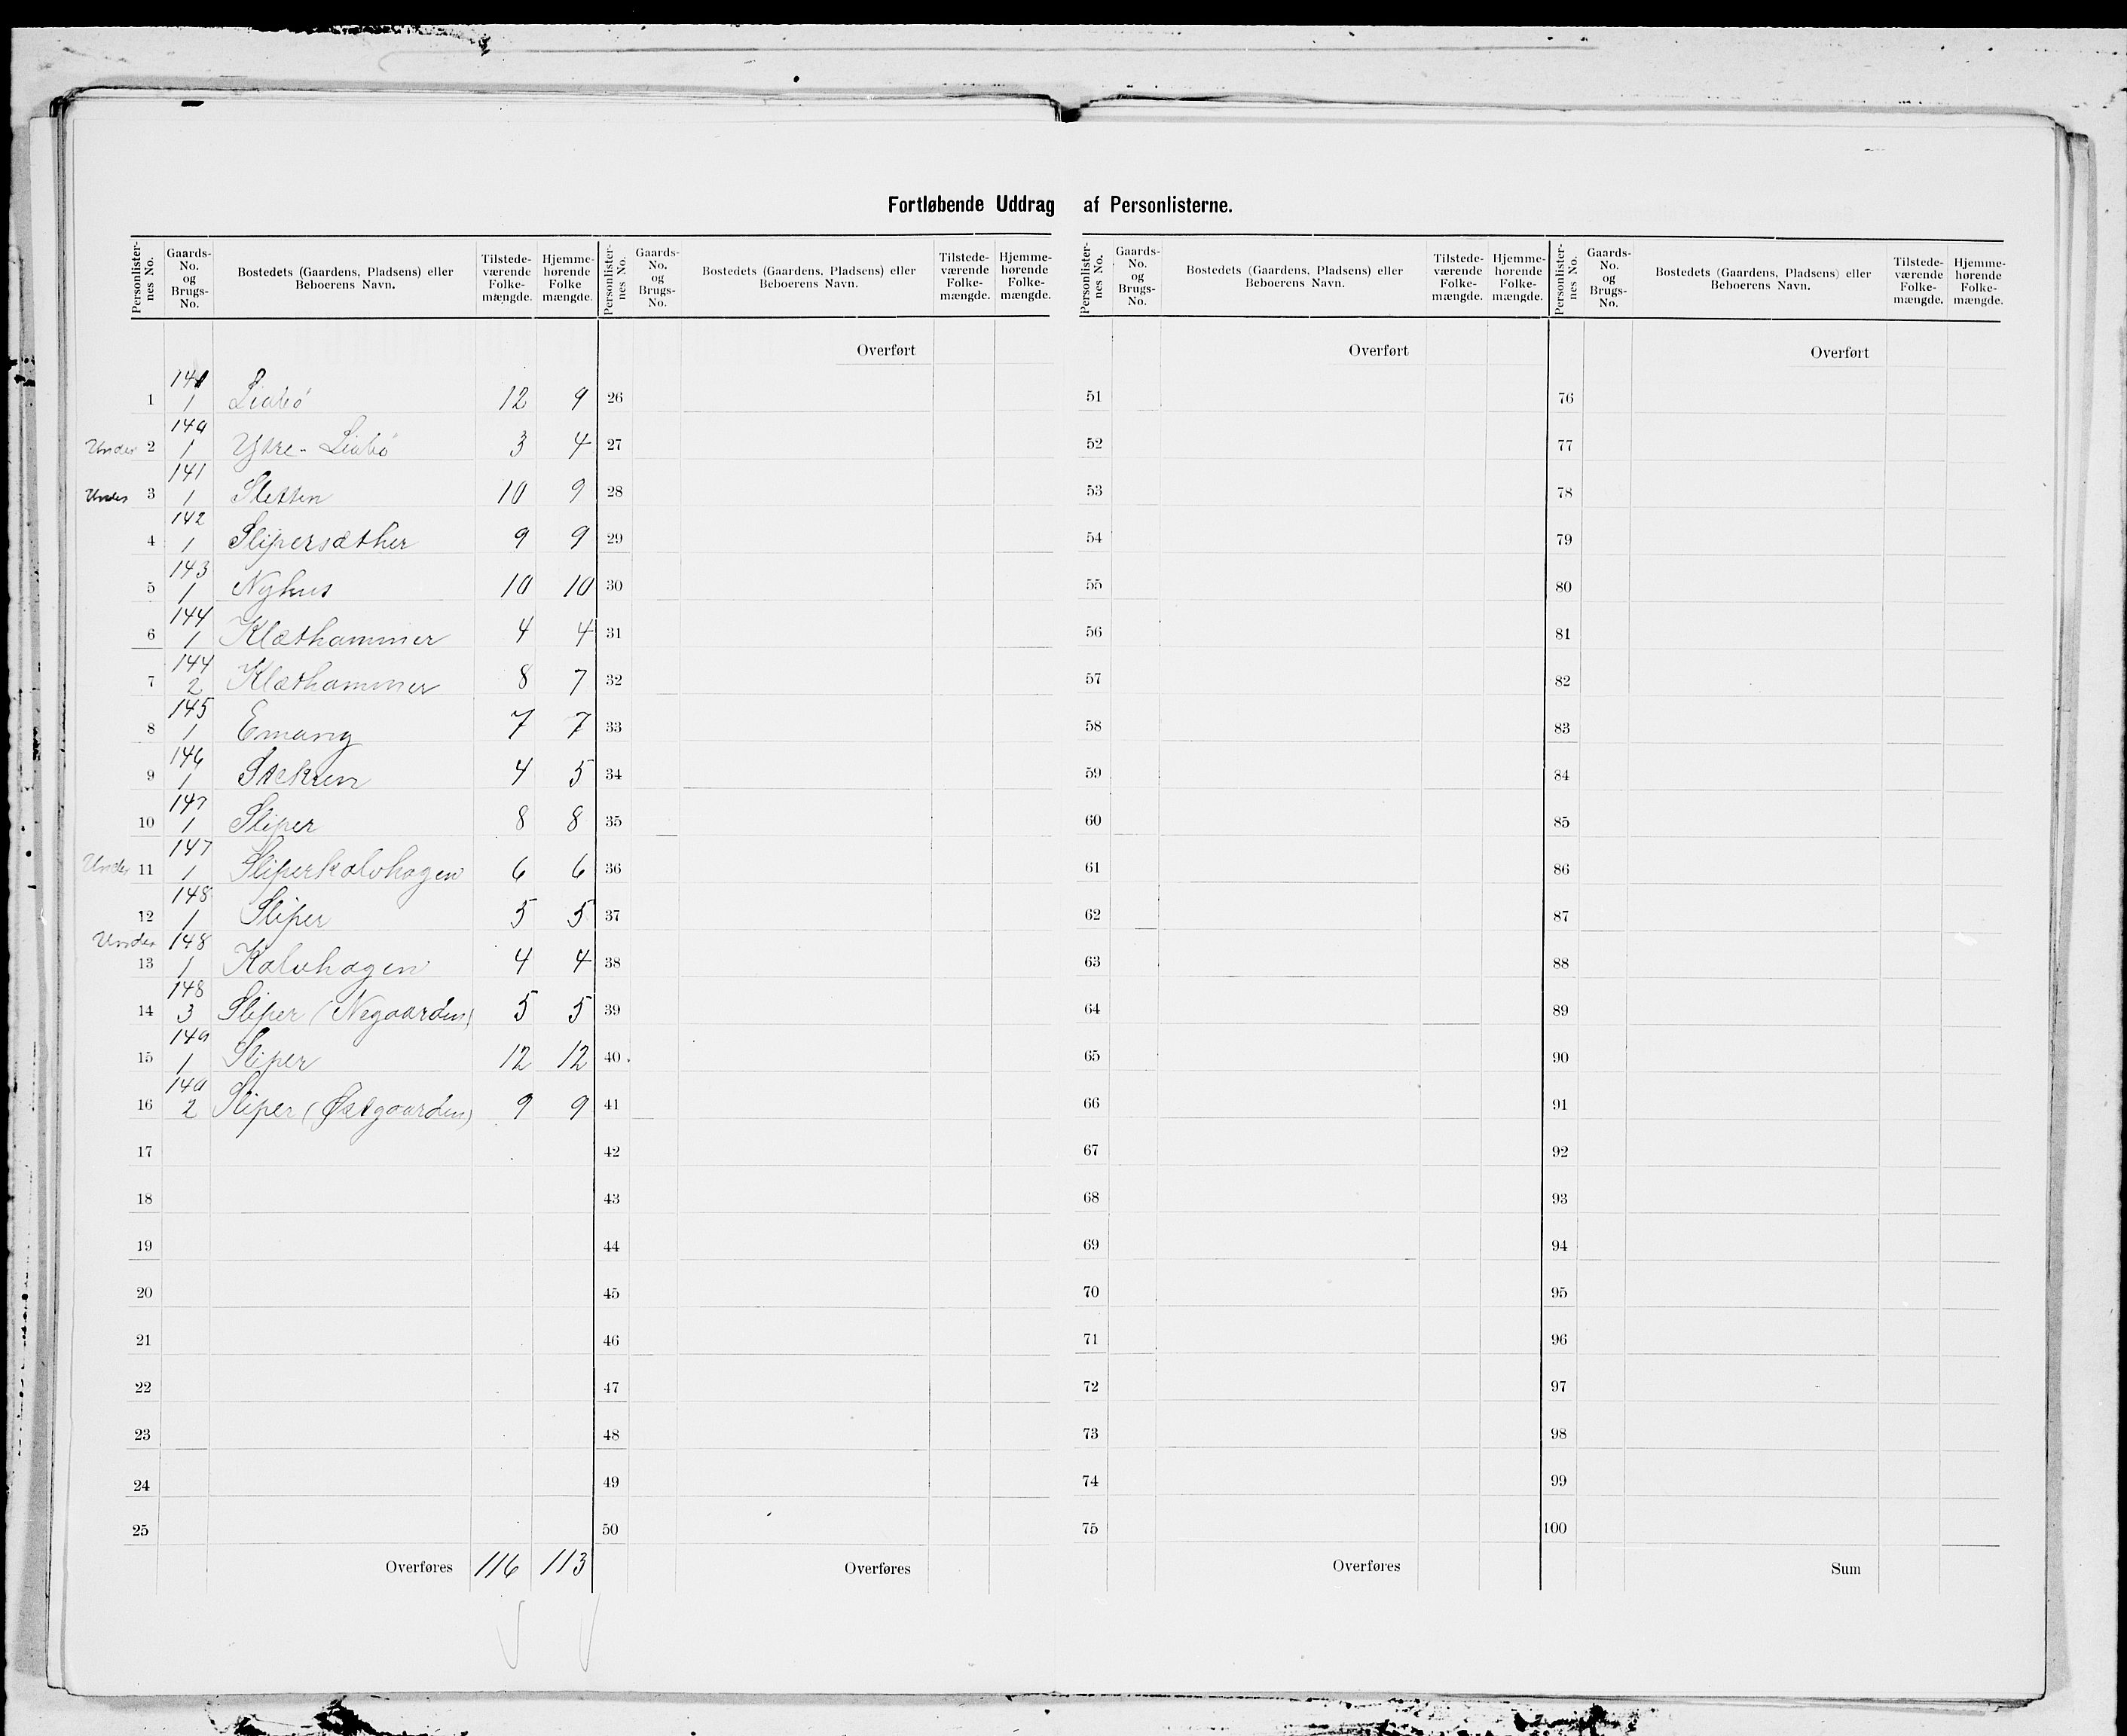 Fortløbende Uddrag af Personlisterne.
Personlister-nes No. Gaards-No. og Brugs-No. Bostedets (Gaardens, Pladsens) eller Beboerens Navn. Tilstede-værende Folke-mængde. Hjemme-hørende Folke mængde.
Personlister-nes No. Gaards-No. og Brugs-No. Bostedets (Gaardens, Pladsens) eller Beboerens Navn. Tilstede-værende Folke-mængde. Hjemme-hørende Folke-mængde.
Personlister-nes No. Gaards-No. og Brugs-No. Bostedets (Gaardens, Pladsens) eller Beboerens Navn. Tilstede-værende Folke-mængde. Hjemme-hørende Folke-mængde.
Personlister-nes No. Gaards-No. og Brugs-No. Bostedets (Gaardens, Pladsens) eller Beboerens Navn. Tilstede-værende Folke-mængde. Hjemme-hørende Folke-mængde.
Overført Overført Overført
1 1 Liabö 12 9 26 51 76
Under 2 1 Ytre-Liabö 3 4 27 52 77
Under 3 141 1 Sletten 10 9 28 53 78
4 142 1 Slipersæther 9 9 29 54 79
5 143 1 Nyhus 10 10 30 55 80
6 144 1 Klæthammer 4 4 31 56 81
7 144 2 Klæthammer 8 7 32 57 82
8 145 1 Emang 7 7 33 58 83
9 146 1 4 5 34 59 84
10 147 1 Sliper 8 8 35 60 85
Under 11 147 1 Sliperkalvhagen 6 6 36 61 86
12 148 1 Sliper 5 5 37 62 87
Under 13 148 1 Kalvhagen 4 4 38 63 88
14 148 3 Sliper (Negaarden) 5 5 39 64 89
15 149 1 Sliper 12 12 40 65 90
16 149 2 Sliper (Østgaarden) 9 9 41 66 91
17 42 67 92
18 43 68 93
19 44 69 94
20 45 70 95
21 46 71 96
22 47 72 97
23 48 73 98
24 49 74 99
25 50 75 100
Overføres 116 113 Overføres Overføres Sum